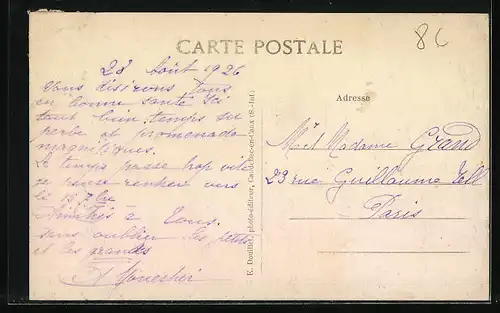 CARTE POSTALE
86
28 Août 1926
Vous désirons tous
en bonne santé Ici
tout bien, temps su
perbe et promenade
magnifiques.
Le temps passe trop vite
je pense rentrer vers
le 15 7bre
Amitiés à tous.
sans oublier les petits
et les grands
E. Douillet, photo-éditeur, (S.-Inf.)
Adresse
Mr et Madame Grand
29 rue Guillaume Tell
Paris